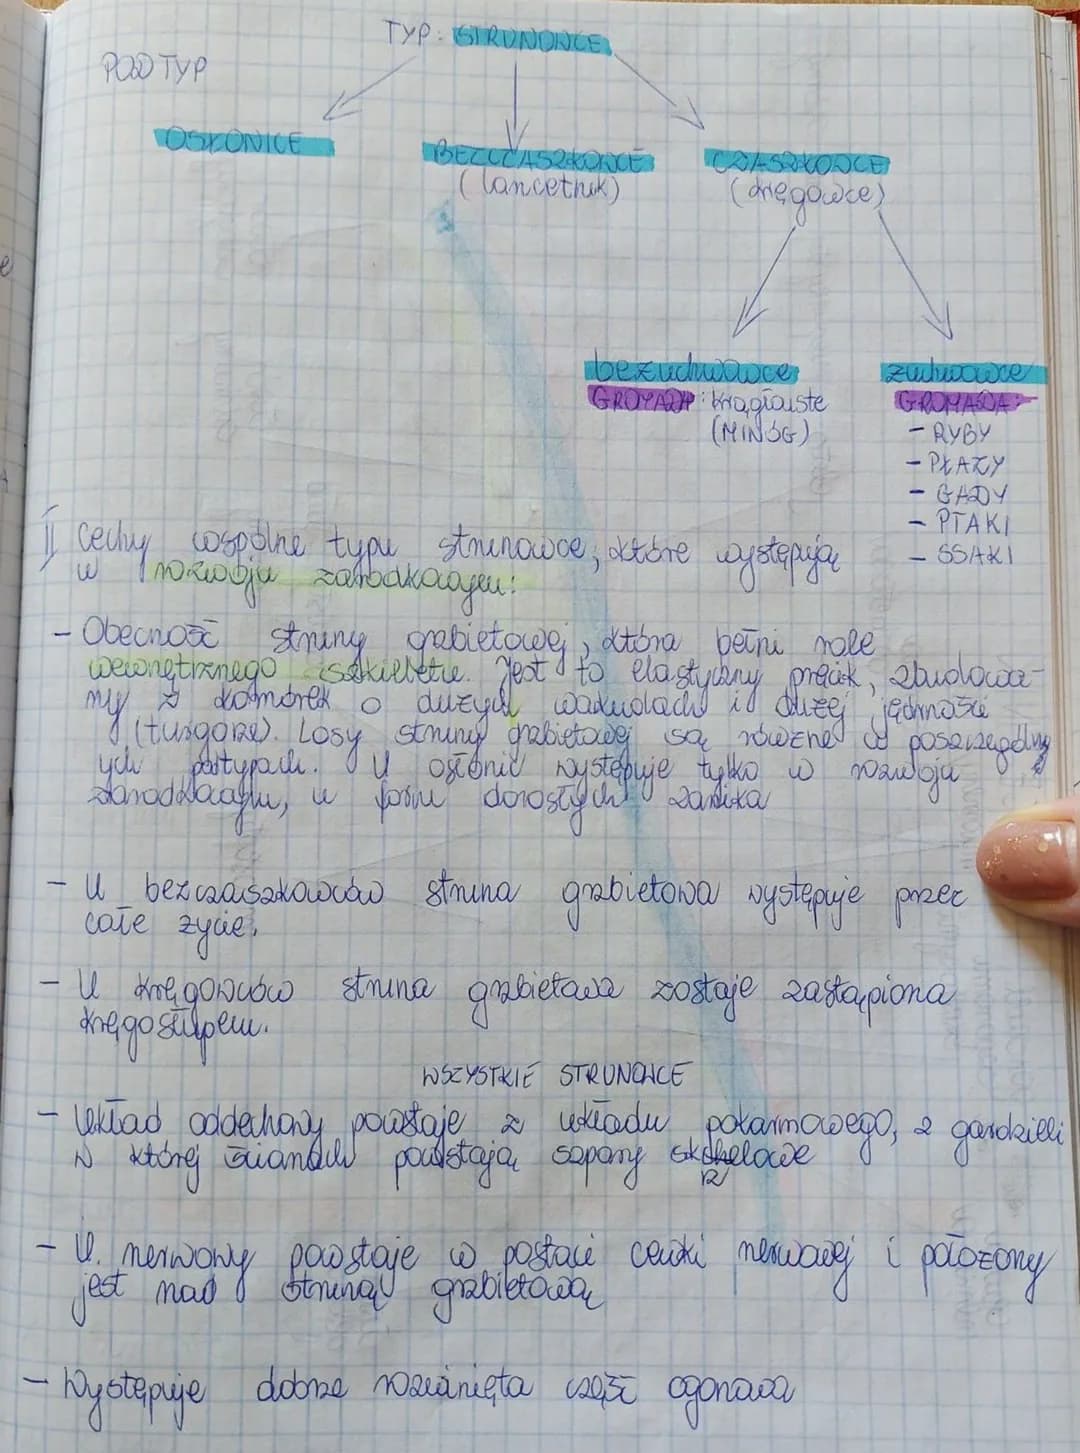 TYP: STRUNOWCE
PODTYP
OSŁONICE
BEZCZASZKOWCE
(lancetnik)
CZASZKOWCE
(kręgowce)
bezżuchwowce
GROMADA: krągłouste
(MINÓG)
żuchwowce
GROMADA:
- RYBY
- PŁAZY
- GADY
- PTAKI
- SSAKI
II Cechy wspólne typu strunowce, które występują
w rozwoju zarodkowym:
- Obecność struny grzbietowej, która pełni role
wewnętrznego szkieletu. Jest to elastyczny pręcik, zbudowa-
ny z komórek o dużych wakuolach i dużej jędrności
(turgorze). Losy struny grzbietowej są różne w poszczególny
ych podtypach. U osłonic występuje tylko w rozwoju
zarodkowym, u form dorosłych zanika
- U bezczaszkowców struna grzbietowa występuje przez
całe życie.
- U kręgowców struna grzbietowa zostaje zastąpiona
kręgosłupem.
WSZYSTKIE STRUNOWCE
- Układ oddechowy powstaje z układu pokarmowego, z gardzieli
w której ścianach powstają szpary skrzelowe
- U. nerwowy powstaje w postaci cewki nerwowej i położony
jest nad struną grzbietową
- Występuje dobrze rozwinięta część ogonowa